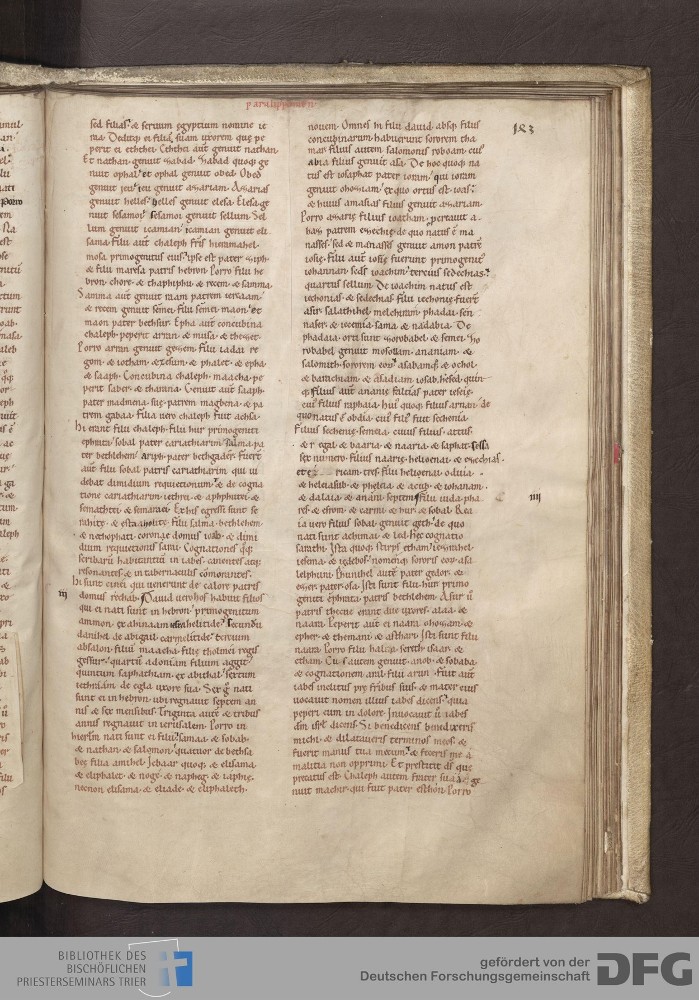 paralippomenon
sed filias & seruum egyptium nomine ie
ma Deditq; ei filiā suam uxorem que pe
perit ei eththei Eththei aūt genuit nathan
Et nathan genuit sabad Sabad quoq; ge
nuit ophal et ophal genuit obed Obed
genuit ieu ieu genuit azariam Azarias
genuit helles helles genuit elesa Elesa ge
nuit sesamoi Sesamoi genuit sellum Sel
lum genuit icamian icamian genuit eli
sama filii aūt chaleph frīs hieramahel
mosa primogenitus eius ipse est pater siph
& filii maresa patris hebron Porro filii he
bron chore & thaphphu & recem & samma
Samma aūt genuit raam patrem iercaam
& recem genuit semei filii semei maon et
maon pater bethsur Epha aūt concubina
chaleph peperit arran & musa & thezet
Porro arran genuit gezem filii iadai re
gom & iotham & zesum & phalet & epha
& saaph Concubina chaleph maacha pe
perit saber & thanna Genuit aūt saaph
pater madmena sue patrem magbena & pa
trem gabaa filia uero chaleph fuit achsa
Hi erant filii chaleph filii hur primogeniti
ephrata sobal pater cariathiarim salma pa
ter bethlehem ariph pater bethgader fuert̄
aūt filii sobal patris cariathiarim qui ui
debat dimidium requietionum & de cogna
tione cariathiarim iethrei & aphphutei &
semathei & semaraei Et his egressi sunt sa
rahitę & estaaholite filii salma bethlehem
& nethophati coronae domus ioab & dimi
dium requietionis sarai Cognationes q̄q;
scribarū habitantiū in iabes canentes atq;
resonantes & in tabernaculis cōmorantes
Hi sunt cinei qui uenerunt de calore patris
iii
domus rechab Dauid uero hos habuit filios
qui ei nati sunt in hebron primogenitum
ammon ex ahinaam iezrahelitide Secundū
danihel de abigail carmelitide tertium
absalon filiū maacha filię tholmei regis
gessur quartū adoniam filium aggit
quintum saphathiam ex abithal Sextum
iethraam de egla uxore sua Sex g̊ nati
sunt ei in hebron ubi regnauit septem an
nis & sex mensibus Triginta autē & tribus
annis regnauit in ierusalem Porro in
hierl̄m nati sunt ei filii samaa & sobab
& nathan & salomon quattuor de bethsa
bee filia amihel Iebaar quoq; & elisama
& eliphalet & noge & napheg & iaphie
necnon elisama & eliade & eliphaleth
nouem Omnes hi filii dauid absq; filiis
concubinarum habuerunt sororem tha
mar filius autem salomonis roboam cui'
abia filius genuit asa De hoc quoq; na
tus est iosaphat pater ioram qui ioram
genuit ohoziam ex quo ortus est ioas
& huius amasias filius genuit azariam
Porro azarię filius ioatham pcreauit a
haz patrem ezechię de quo natus ē ma
nasses sed & manasses genuit amon patrē
iosię filii aūt iosię fuerunt primogenit'
iohannan Scds̄ ioachim tercius sedechias
quartus sellum De ioachim natus est
iechonias & sedechias filii iechonię fuert̄
asir salathihel melchiram phadai sen
naser & iecemia sama & nadabia De
phadaia orti sunt zorobabel & semei Zo
robabel genuit mosollam ananiam &
salomith sororem eorū asabamq; & ochol
& barachiam & asadiam iosab hesed quin
q; filius aūt ananię falthias pater ieseię
cui' filius raphaia hui' quoq; filius arnan de
quo natus ē obdia cui' fili' fuit sechenia
Filius sechenię semeia cuius filius attus
& iegal & baaria & naaria & saphat sessa
sex numero filius naarię helioenai & ezechias
et ezricam tres filii helioenai oduia
& heliasub & pheleia & accub & iohanan
& dalaia & anani septem filii iuda pha
iiii
res & esrom & carmi & hur & sobal Rea
ia uero filius sobal genuit geth de quo
nati sunt achimai & led Hęc cognatio
sarathi Ista quoq; stirps etham iezrahel
iesema & iedebos nomenq; sororis eor' asa
lelphuni Phunihel autē pater gedor &
ezer pater osa Isti sunt filii hur primo
geniti ephrata patris bethlehem Asur ū
patris thecue erant due uxores alaa &
naara Peperit aut ei naara ohozam &
epher & themani & asthari Isti sunt filii
naara Porro filii halaa sereth isaar &
ethan Cus autem genuit anob & sobaba
& cognationem aral filii arun Fuit aūt
iabes inclitus pre fribus suis & mater eius
uocauit nomen illius iabes dicens quia
peperi eum in dolore Inuocauit ū iabes
dm̄ isrl̄ dicens Si benedicens benedixeris
michi & dilataueris terminos meos &
fuerit manus tua mecum & feceris me a
malitia non opprimi Et prestitit ds̄ que
precatus est Chaleph autem frater suaa ge
nuit machir qui fuit pater esthon Porro
BIBLIOTHEK DES
BISCHÖFLICHEN
PRIESTERSEMINARS TRIER
gefördert von der
Deutschen Forschungsgemeinschaft
DFG